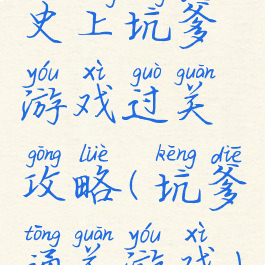 史上坑爹
yóu xì guò guān
游戏过关
gōng lüè kēng diē
攻略(坑爹
tōng guān yóu xì
通关游戏)